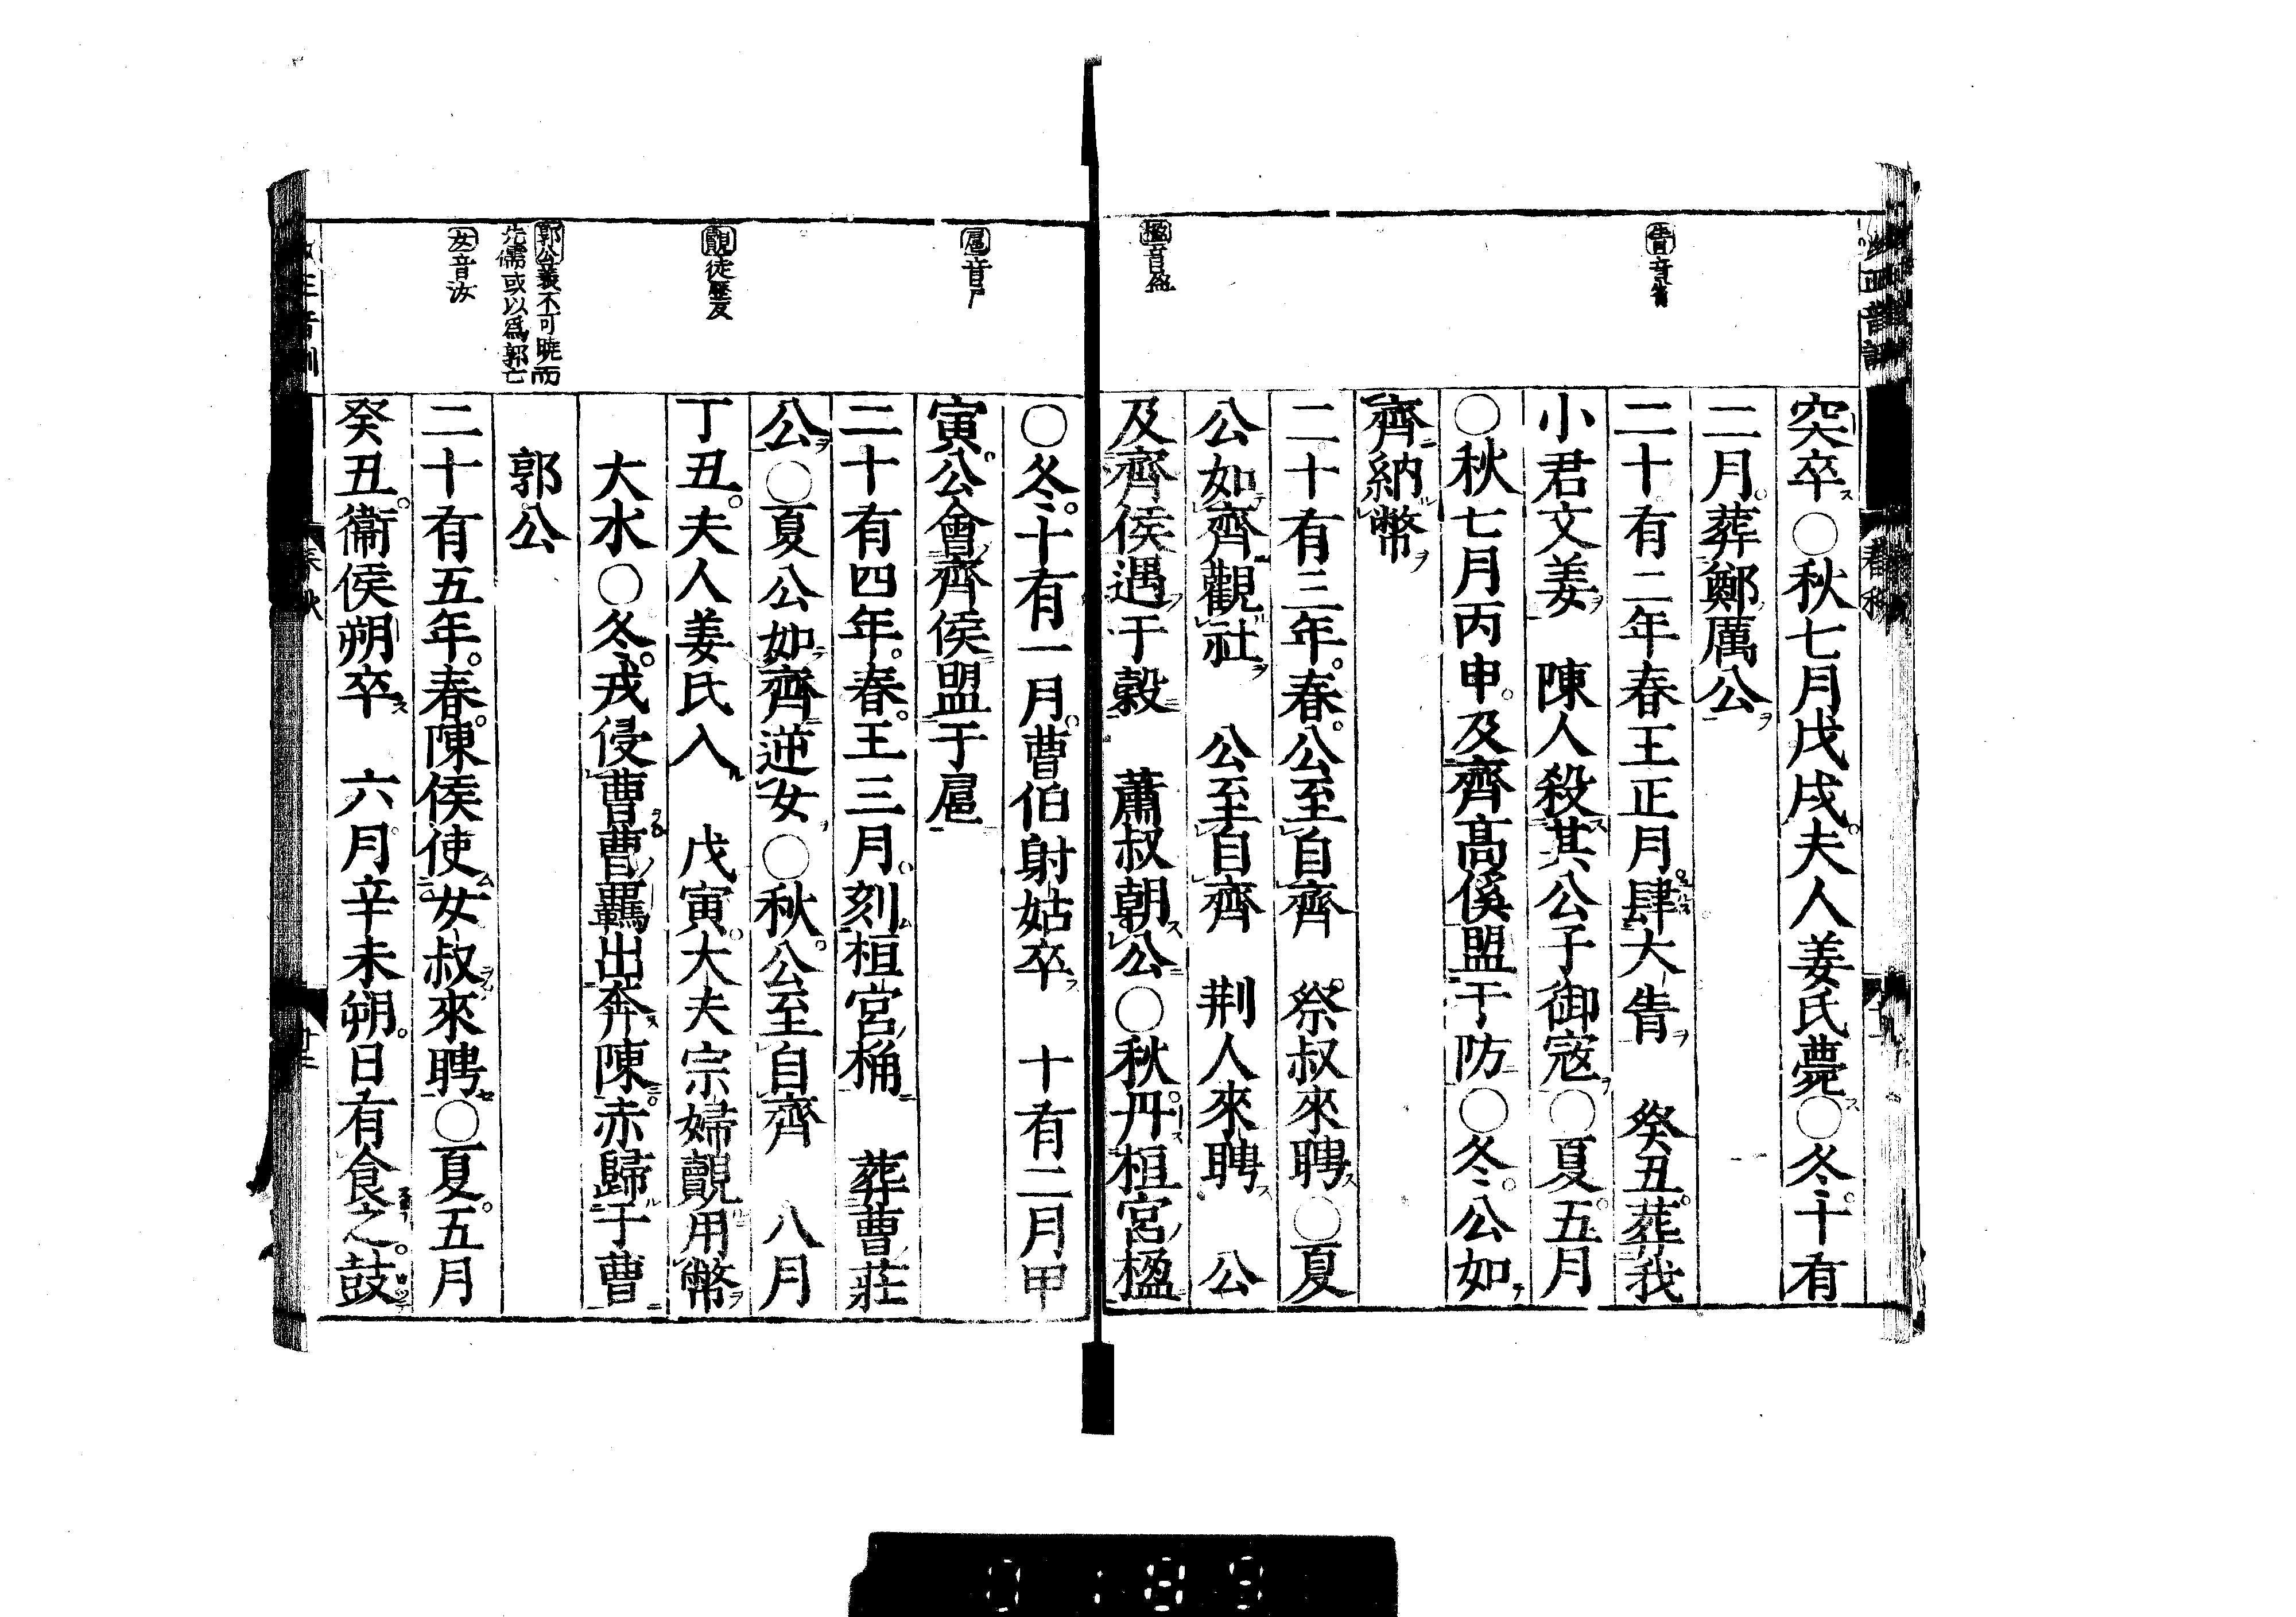 突卒○秋七月戊戌夫人姜氏薨○冬十有
二月葬鄭厲公
二十有二年春王正月肆大眚　癸丑葬我
小君文姜　陳人殺其公子御寇○夏五月
○秋七月丙申及齊高傒盟于防○冬公如
齊納幣
二十有三年春公至自齊　祭叔來聘○夏
公如齊觀社　公至自齊　荆人來聘　公
及齊侯遇于穀　蕭叔朝公○秋丹桓宮楹
眚音省
楹音盈
春秋
○冬十有一月曹伯射姑卒　十有二月甲
寅公會齊侯盟于扈
二十有四年春王三月刻桓宮桷　葬曹莊
公○夏公如齊逆女○秋公至自齊　八月
丁丑夫人姜氏入　戊寅大夫宗婦覿用幣
大水○冬戎侵曹曹羈出奔陳赤歸于曹
郭公
二十有五年春陳侯使女叔來聘○夏五月
癸丑衞侯朔卒　六月辛未朔日有食之鼓
扈音戶
覿徒歷反
郭公義不可曉而
先儒或以爲郭亡
女音汝
春秋